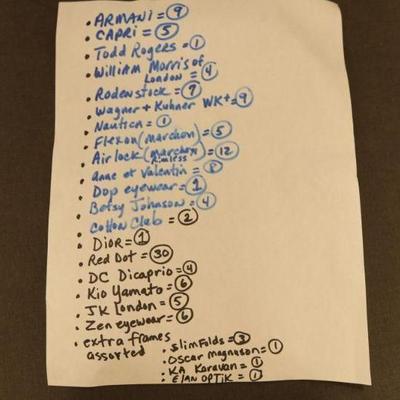 • ARMANI = 9
• CAPRI = 5
• Todd Rogers = 1
• William Morris of
London = 4
• Rodenstock = 7
• Wagner + Kuhner WK+ = 9
• Nautica = 1
• Flexon (marchon) = 5
• Airlock (marchon) = 12
Rimless
• anne et Valentin = 8
• Dop eyewear = 1
• Betsy Johnson = 4
• Cotton Club = 2
• DIOR = 1
• Red Dot = 30
• DC Dicaprio = 4
• Kio Yamato = 6
• JK London = 5
• Zen eyewear = 6
• extra frames
assorted
• Slimfolds = 3
• Oscar magnuson = 1
• KA Karavan = 1
• E/AN OPTIK = 1